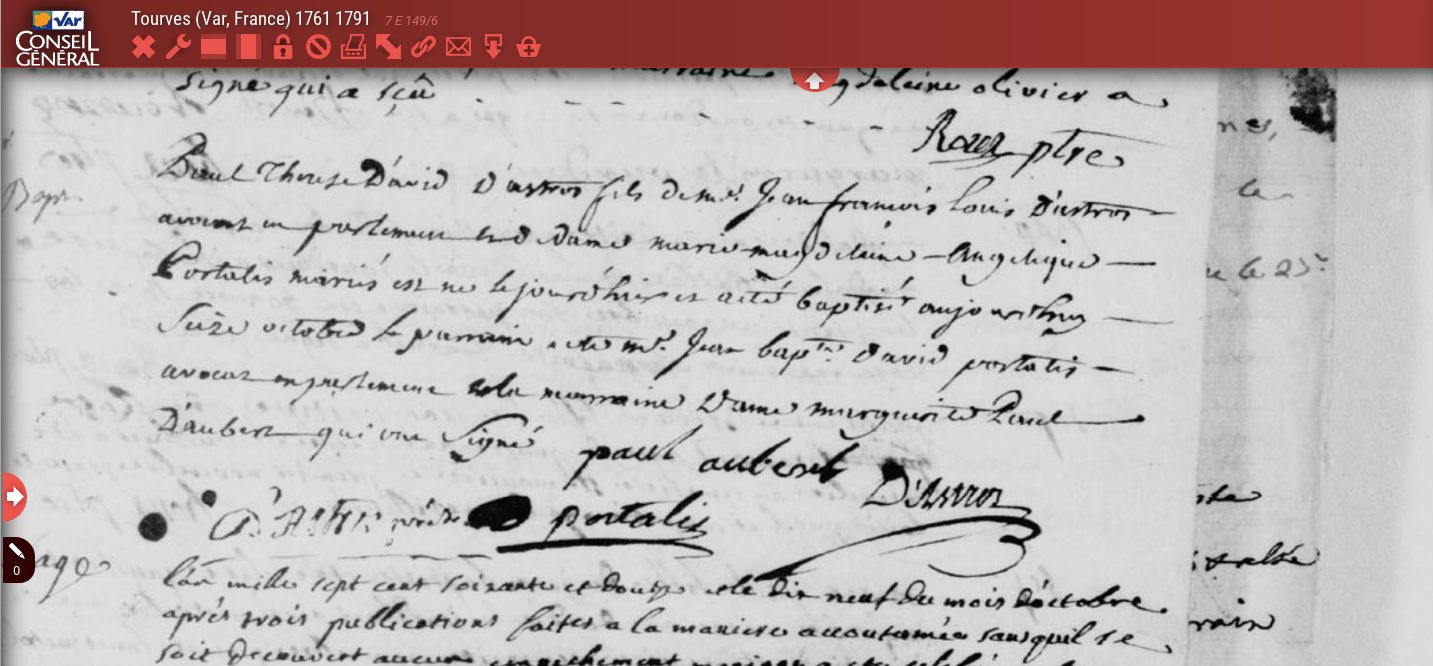 Tourves (Var, France) 1761 1791 7 E 149/6
VAR
CONSEIL
GÉNÉRAL
signé qui a sçu
marraine magdelaine olivier a
Roux ptre
Bapt
Paul Therese David D'astros fils de mr. Jean francois louis D'astros
avocat en parlement et de dame marie magdelaine Angelique
Portalis mariés est né le jourd'huy et a été baptisé aujourdhuy
seize octobre le parrain a été mr. Jean bapte. David portalis
avocat en parlement et la marraine Dame marguerite Paul
D'aubert qui ont signé
paul aubert
D'Astros
portalis
0
age
l'an mille sept cent soixante et douze et le dix neuf du mois d'octobre
aprés trois publications faites a la maniere accoutumée sans quil se
soit decouvert aucun empechement
le
le 23